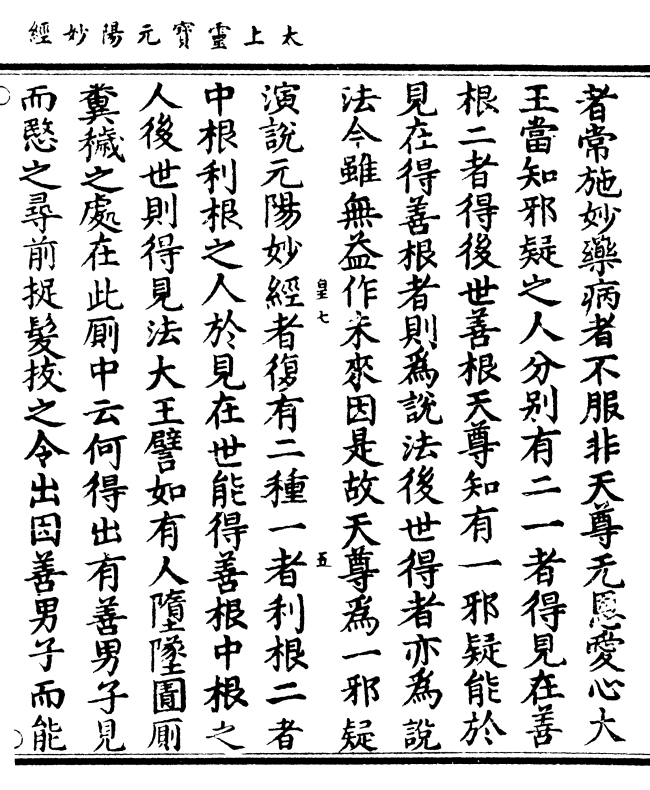 太上靈寶元陽妙經
者常施妙藥病者不服非天尊无恩愛心大
王當知邪疑之人分别有二一者得見在善
根二者得後世善根天尊知有一邪疑能於
見在得善根者則為說法後世得者亦為說
法今雖無益作未來因是故天尊為一邪疑
皇七
五
演說元陽妙經者復有二種一者利根二者
中根利根之人於見在世能得善根中根之
人後世則得見法大王譬如有人墮墜圊厠
糞穢之處在此厠中云何得出有善男子見
而愍之尋前捉髮拔之令出因善男子而能